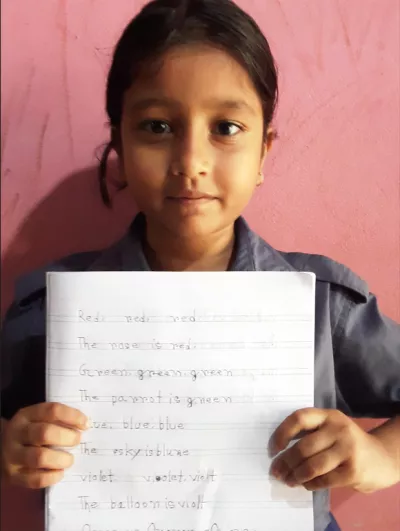 Red. red. red
The rose is red.
Green, green, green
The parrot is green
blue, blue
The sky is blue
violet violet, violt
The balloon is violt